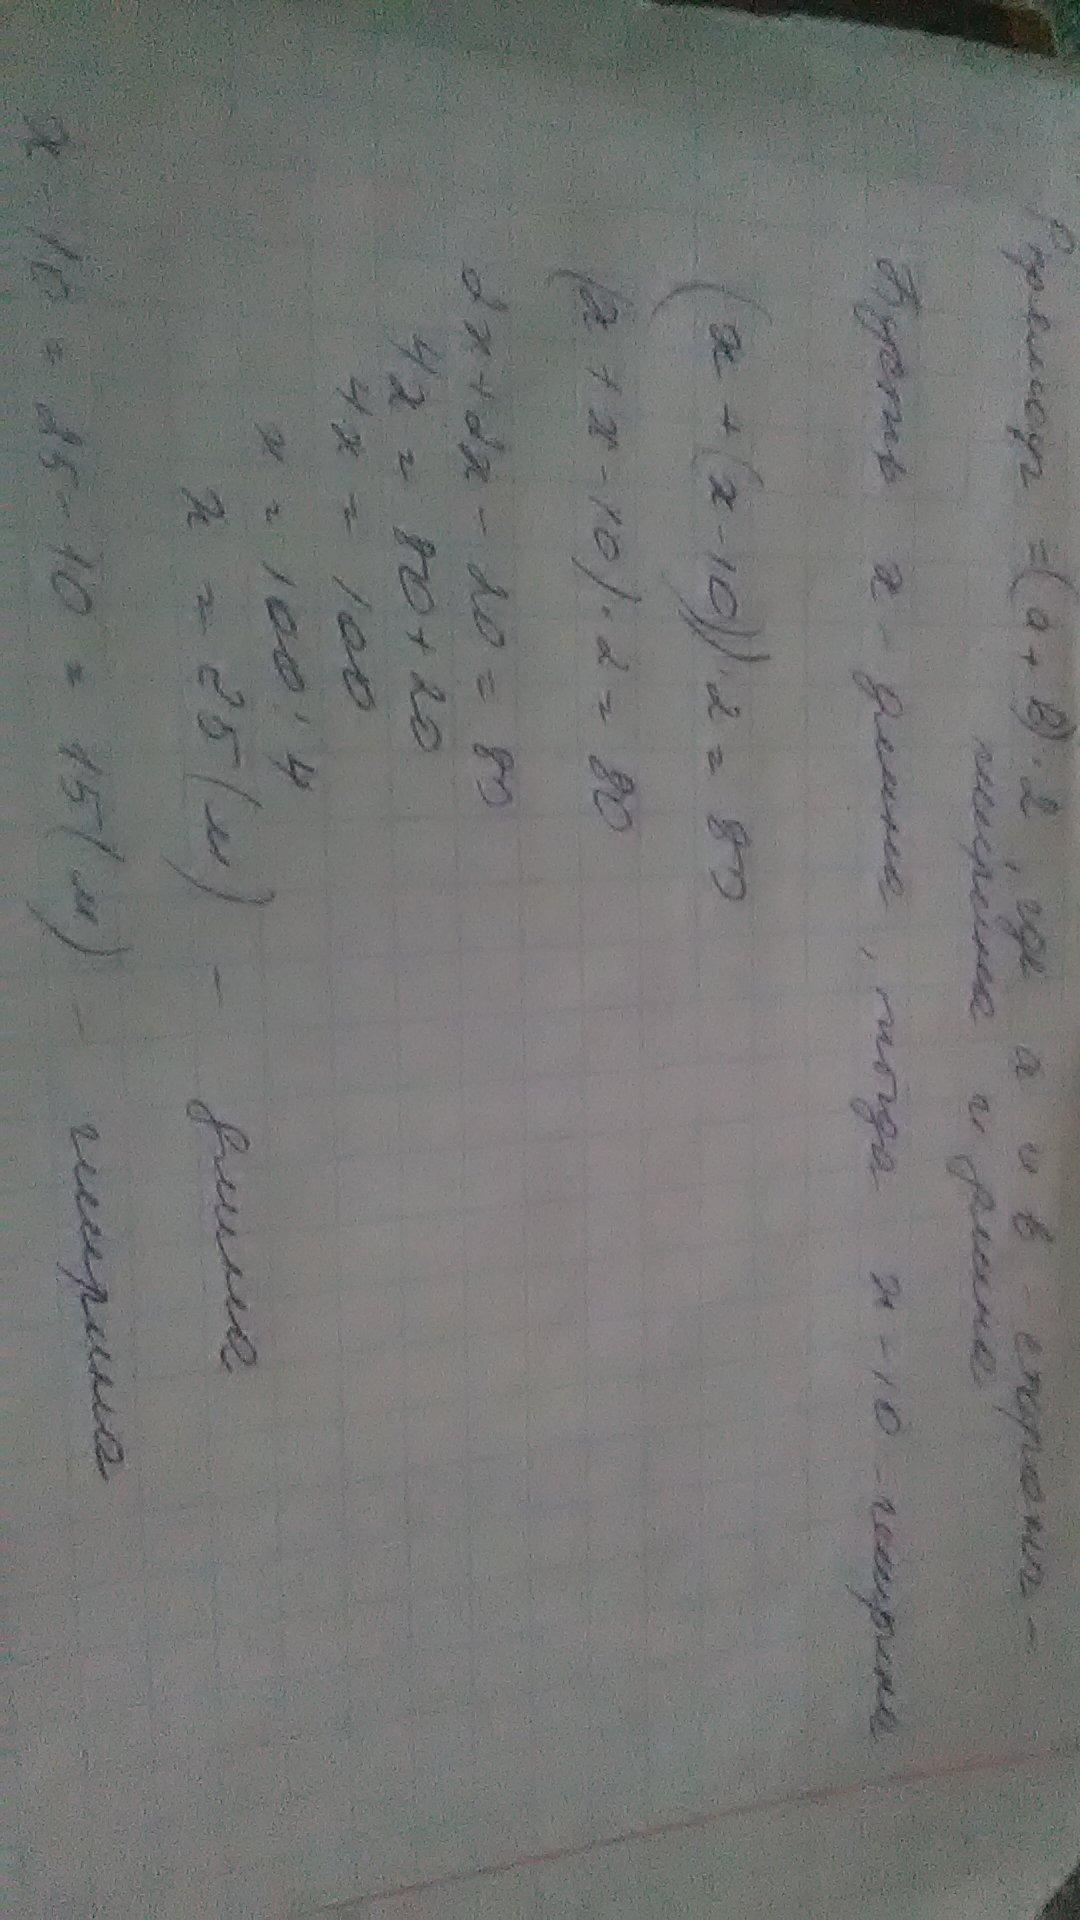 Pпрямоуг = (a + b) · 2, где a и b - стороны -
ширина и длина
Пусть x - длина, тогда x - 10 - ширина
(x + (x - 10)) · 2 = 80
(x + x - 10) · 2 = 80
2x + 2x - 20 = 80
4x = 80 + 20
4x = 100
x = 100 : 4
x = 25 (м) - длина
x - 10 = 25 - 10 = 15 (м) - ширина